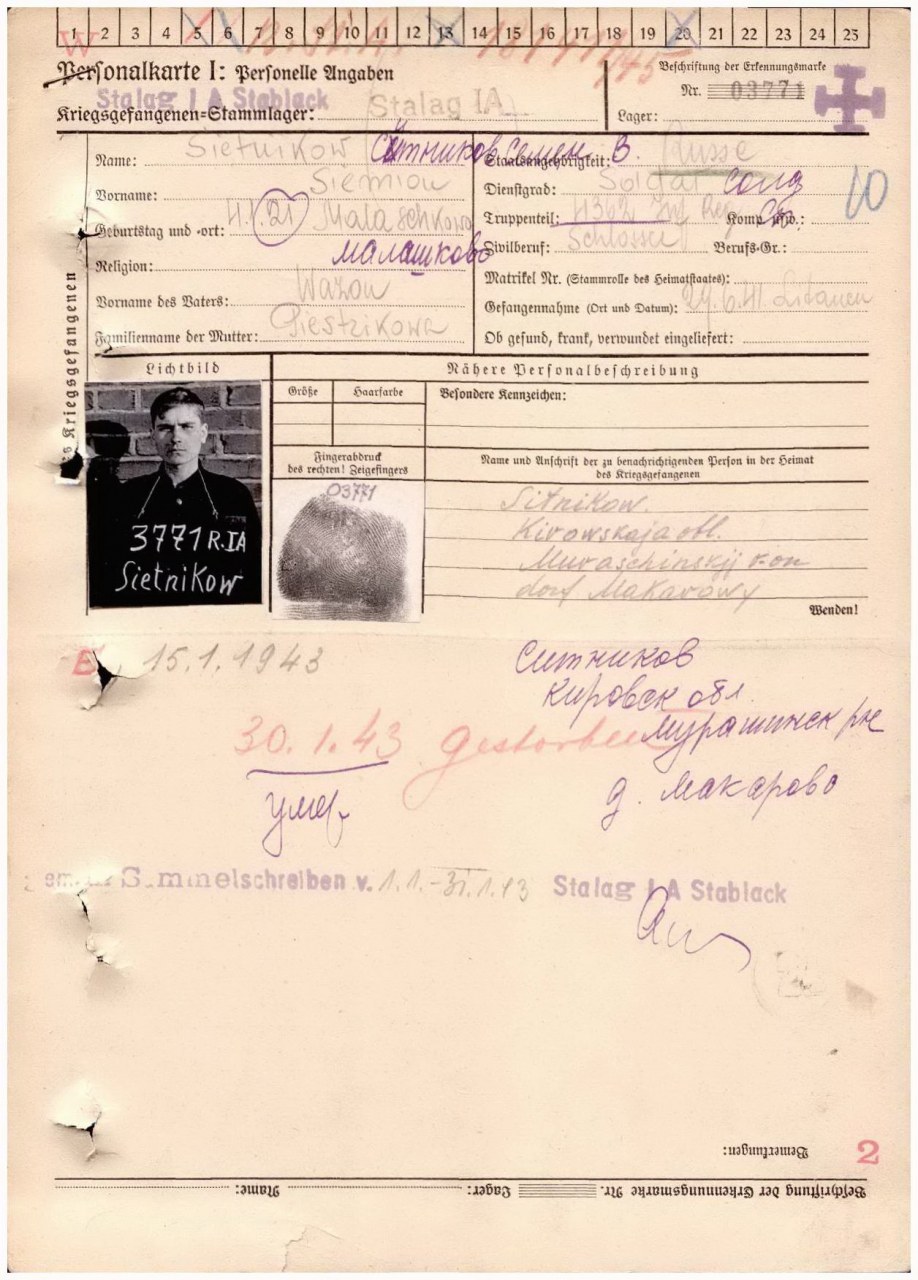 1 2 3 4 5 6 7 8 9 10 11 12 13 14 15 16 17 18 19 20 21 22 23 24 25
W
Personalkarte I: Personelle Angaben
Beschriftung der Erkennungsmarke
Nr. 03771
Stalag I A Stablack
Kriegsgefangenen-Stammlager: Stalag IA
Lager:
des Kriegsgefangenen
Name: Sietnikow Ситников Семен В.
Staatsangehörigkeit: Russe
Vorname: Siemion
Dienstgrad: Soldat солд
10
Geburtstag und -ort: 4.1.21 Malaschkowo
Truppenteil: 4362 Inf. Reg. Komp. usw.:
Religion:
малашково
Zivilberuf: Schlosser Berufs-Gr.:
Matrikel Nr. (Stammrolle des Heimatstaates):
Vorname des Vaters: Wazon
Gefangennahme (Ort und Datum): 29.6.41 Litauen
Familienname der Mutter: Piestrikowa
Ob gesund, krank, verwundet eingeliefert:
Lichtbild
Nähere Personalbeschreibung
Größe Haarfarbe
Besondere Kennzeichen:
Fingerabdruck
des rechten! Zeigefingers
Name und Anschrift der zu benachrichtigenden Person in der Heimat
des Kriegsgefangenen
03771
3771 R.IA
Sietnikow
Sitnikow
Kirowskaja obl.
Muraschinskij
dorf Makarowy
Wenden!
E 15.1.1943
Ситников
Кировск обл.
30.1.43 gestorben
Мурашинск рн
умер
д. Макарово
Sammelschreiben v. 1.1.-31.1.43 Stalag I A Stablack
Bemerkungen:
2
Beschriftung der Erkennungsmarke Nr. Lager: Name: